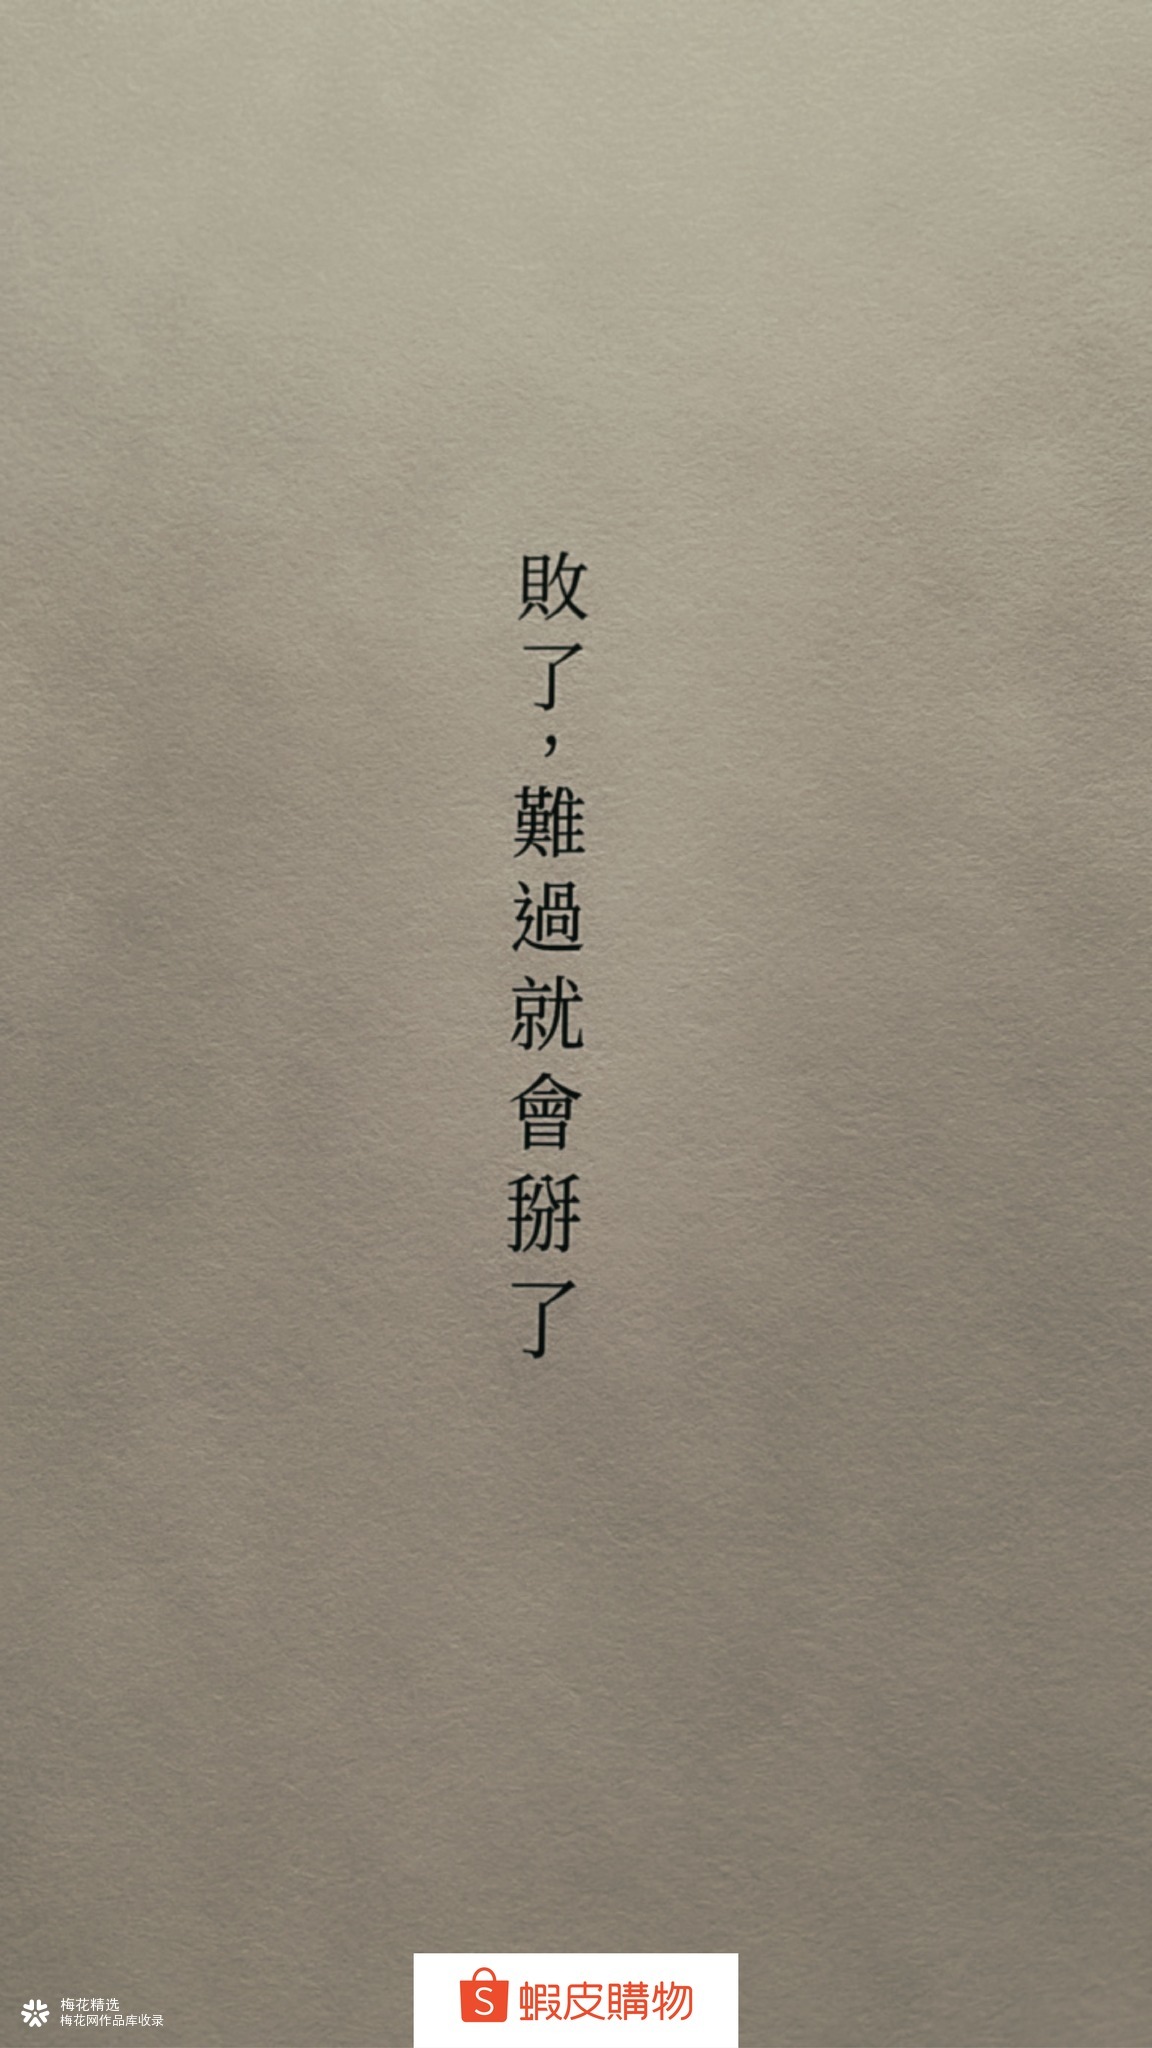 敗了，難過就會掰了
蝦皮購物
梅花精选
梅花网作品库收录